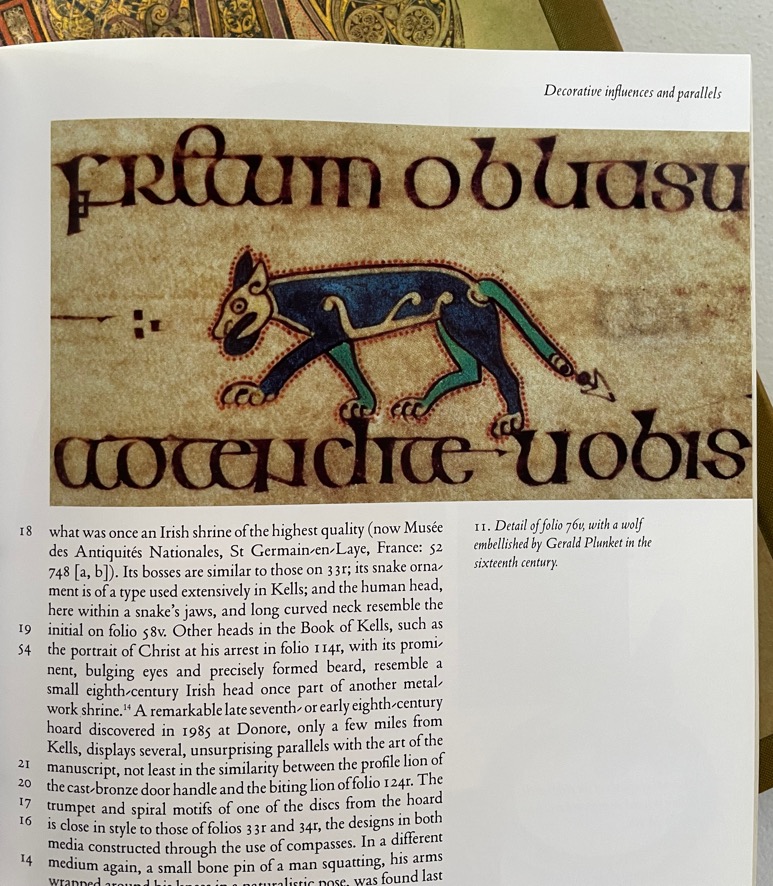 Decorative influences and parallels
fretum obliti su
adtendite uobis
18 what was once an Irish shrine of the highest quality (now Musée
des Antiquités Nationales, St Germain-en-Laye, France: 52
748 [a, b]). Its bosses are similar to those on 33r; its snake orna-
ment is of a type used extensively in Kells; and the human head,
here within a snake's jaws, and long curved neck resemble the
19 initial on folio 58v. Other heads in the Book of Kells, such as
54 the portrait of Christ at his arrest in folio 114r, with its promi-
nent, bulging eyes and precisely formed beard, resemble a
small eighth-century Irish head once part of another metal-
work shrine.¹⁴ A remarkable late seventh- or early eighth-century
hoard discovered in 1985 at Donore, only a few miles from
Kells, displays several, unsurprising parallels with the art of the
21 manuscript, not least in the similarity between the profile lion of
20 the cast-bronze door handle and the biting lion of folio 124r. The
17 trumpet and spiral motifs of one of the discs from the hoard
16 is close in style to those of folios 33r and 34r, the designs in both
media constructed through the use of compasses. In a different
14 medium again, a small bone pin of a man squatting, his arms
wrapped around his knees in a naturalistic pose, was found last
11. Detail of folio 76v, with a wolf
embellished by Gerald Plunket in the
sixteenth century.